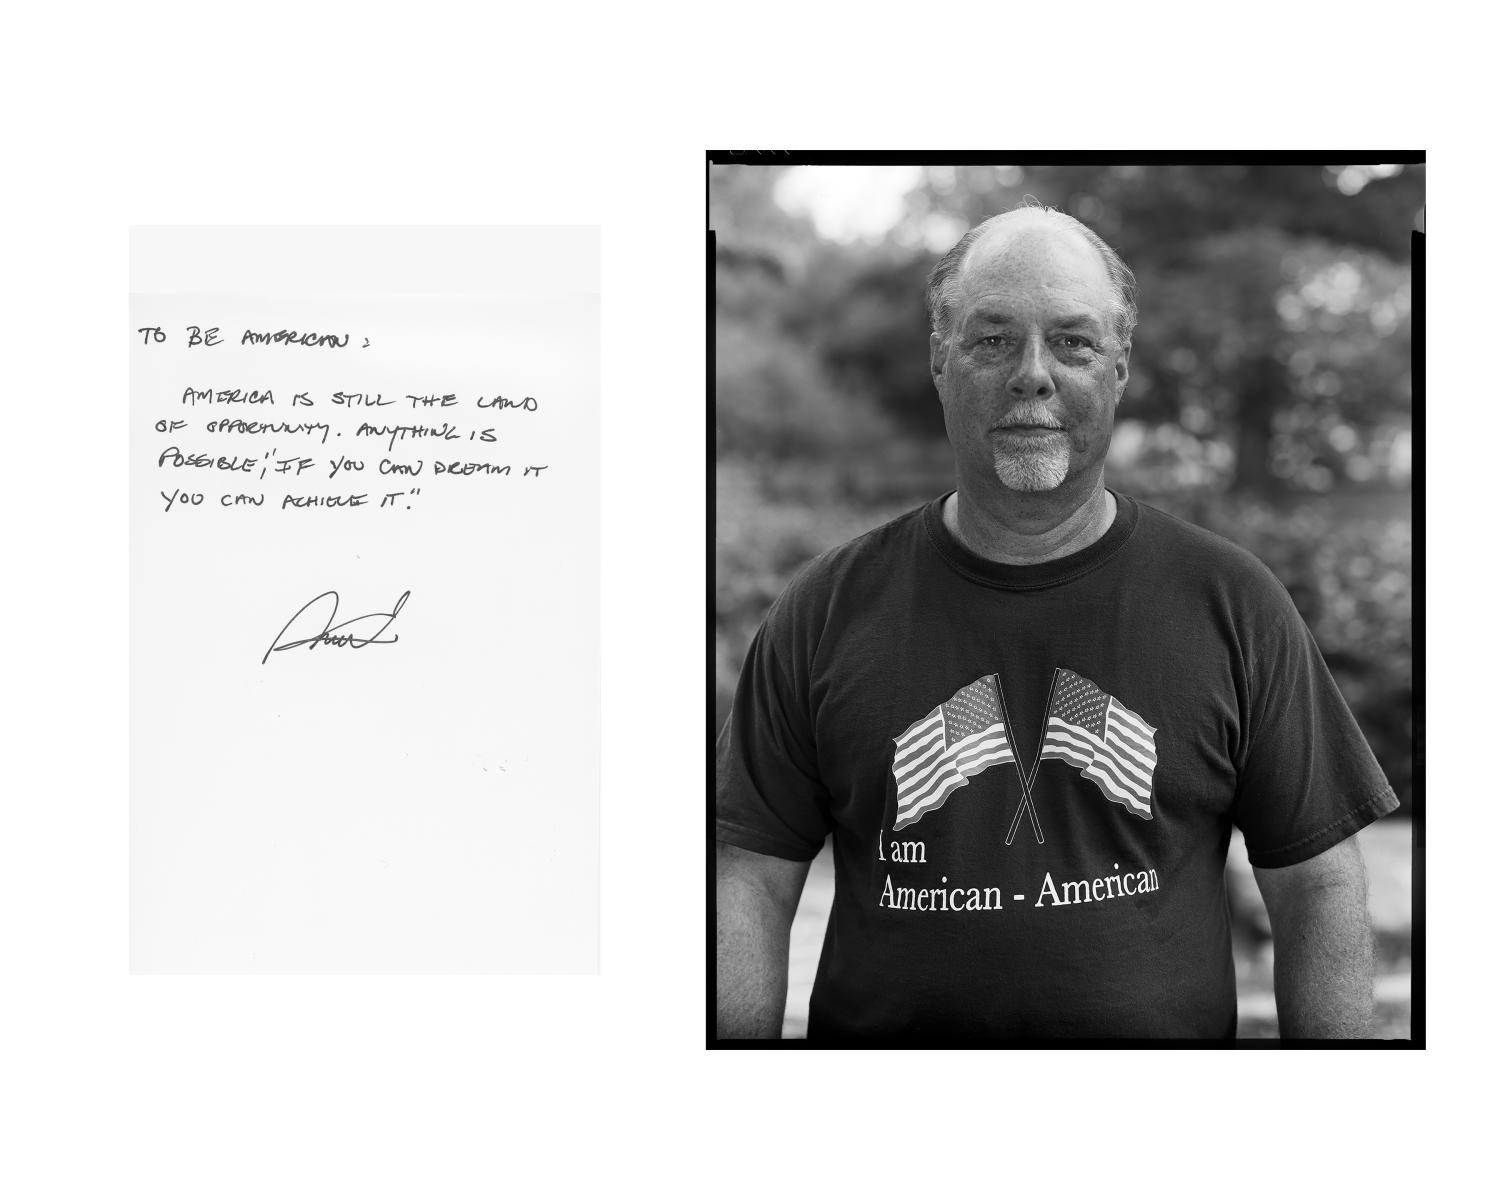 TO BE AMERICAN:
AMERICA IS STILL THE LAND
OF OPPORTUNITY. ANYTHING IS
POSSIBLE, "IF YOU CAN DREAM IT
YOU CAN ACHIEVE IT."
I am
American - American